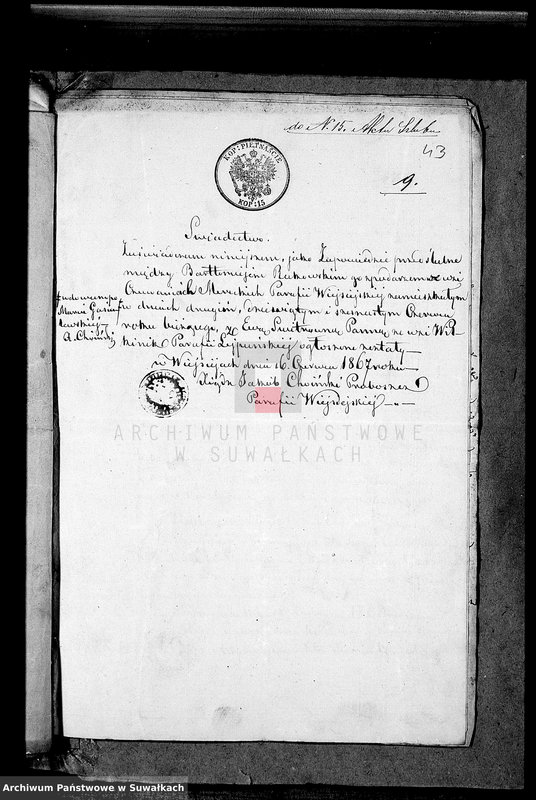 do N. 15. Aktu Szlubu
43
KOP: PIĘTNAŚCIE
KOP: 15
9.
Swiadectwo.
Zaświadczam niniejszem, jako Zapowiedzie przedślubne
między Bartłomiejem Rutkowskim gospodarzem we wsi
Mereckich Parafii Wiejsiejskiej zamieszkałym
w dniach drugim, dziewiątym i szesnastym Czerwca
roku bieżącego, z Ewą Panną ze wsi
Parafii Lejpuńskiej ogłoszone zostały
w Wiejsiejach dnia 16 Czerwca 1867 roku
Xiądz Jakób Choiński Proboszcz
Parafii Wiejsiejskiej
wdowcem po
Maryi
A. Choiński
ARCHIWUM PAŃSTWOWE
W SUWAŁKACH
Archiwum Państwowe w Suwałkach